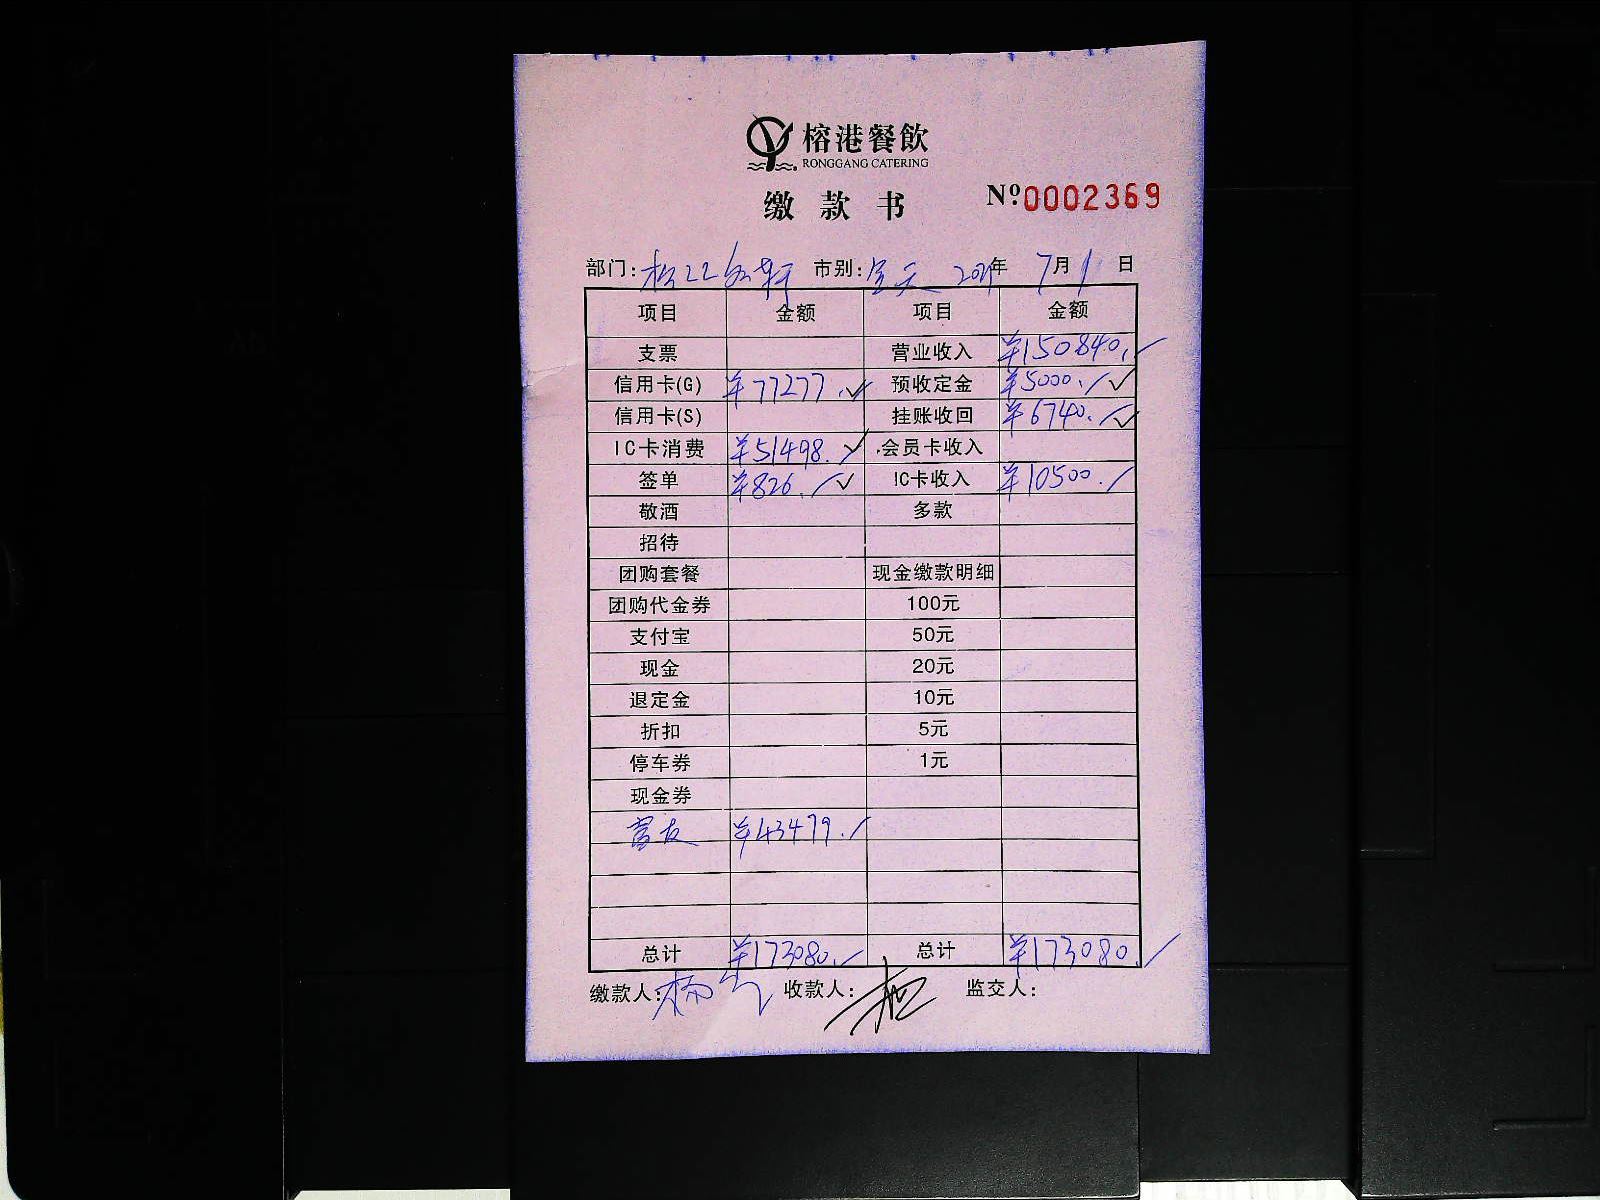 榕港餐飲
RONGGANG CATERING
缴款书 Nº0002369
部门: 市别:全天 年7月1日
项目 金额 项目 金额
支票 营业收入 ¥150840.
信用卡(G) ¥77277. 预收定金 ¥5000.
信用卡(S) 挂账收回 ¥6740.
IC卡消费 ¥51498. 会员卡收入
签单 ¥826. IC卡收入 ¥10500.
敬酒 多款
招待
团购套餐 现金缴款明细
团购代金券 100元
支付宝 50元
现金 20元
退定金 10元
折扣 5元
停车券 1元
现金券
¥43479.
总计 ¥173080. 总计 ¥173080.
缴款人: 收款人: 监交人: